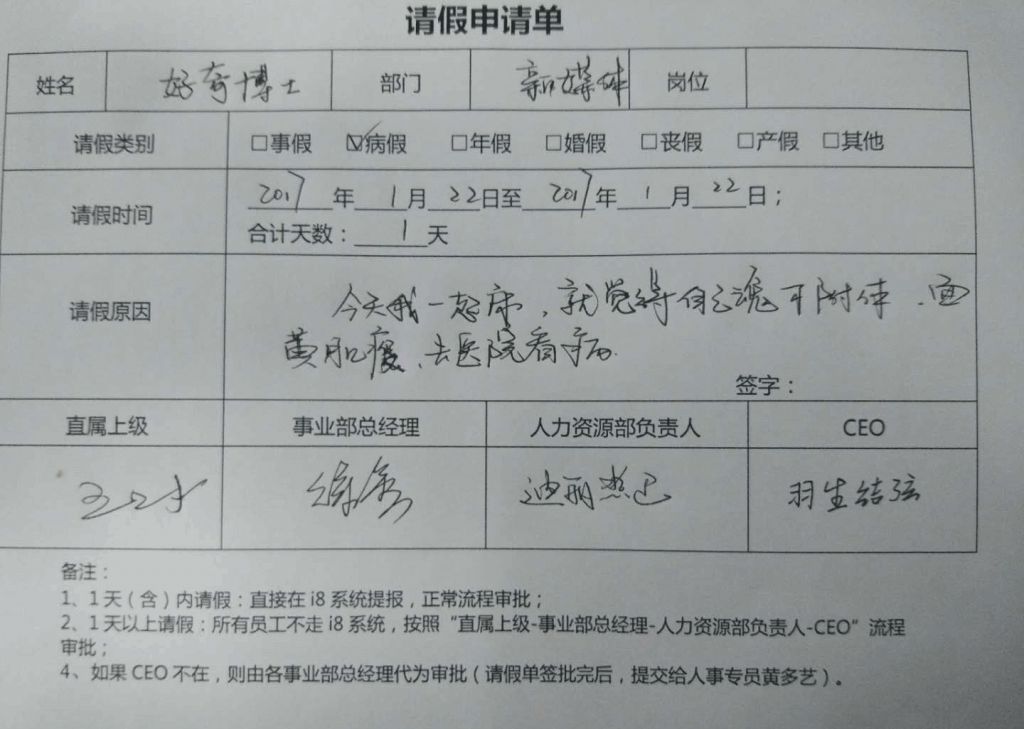 请假申请单
姓名 好奇博士 部门 新媒体 岗位
请假类别 □事假 ☑病假 □年假 □婚假 □丧假 □产假 □其他
请假时间 2017年1月22日至2017年1月22日；
合计天数：1天
请假原因 今天我一起床，就觉得自己魂不附体，面
黄肌瘦、去医院看病.
签字：
直属上级 事业部总经理 人力资源部负责人 CEO
迪丽热巴 羽生结弦
备注：
1、1天（含）内请假：直接在i8系统提报，正常流程审批；
2、1天以上请假：所有员工不走i8系统，按照“直属上级-事业部总经理-人力资源部负责人-CEO”流程
审批；
4、如果CEO不在，则由各事业部总经理代为审批（请假单签批完后，提交给人事专员黄多艺）。